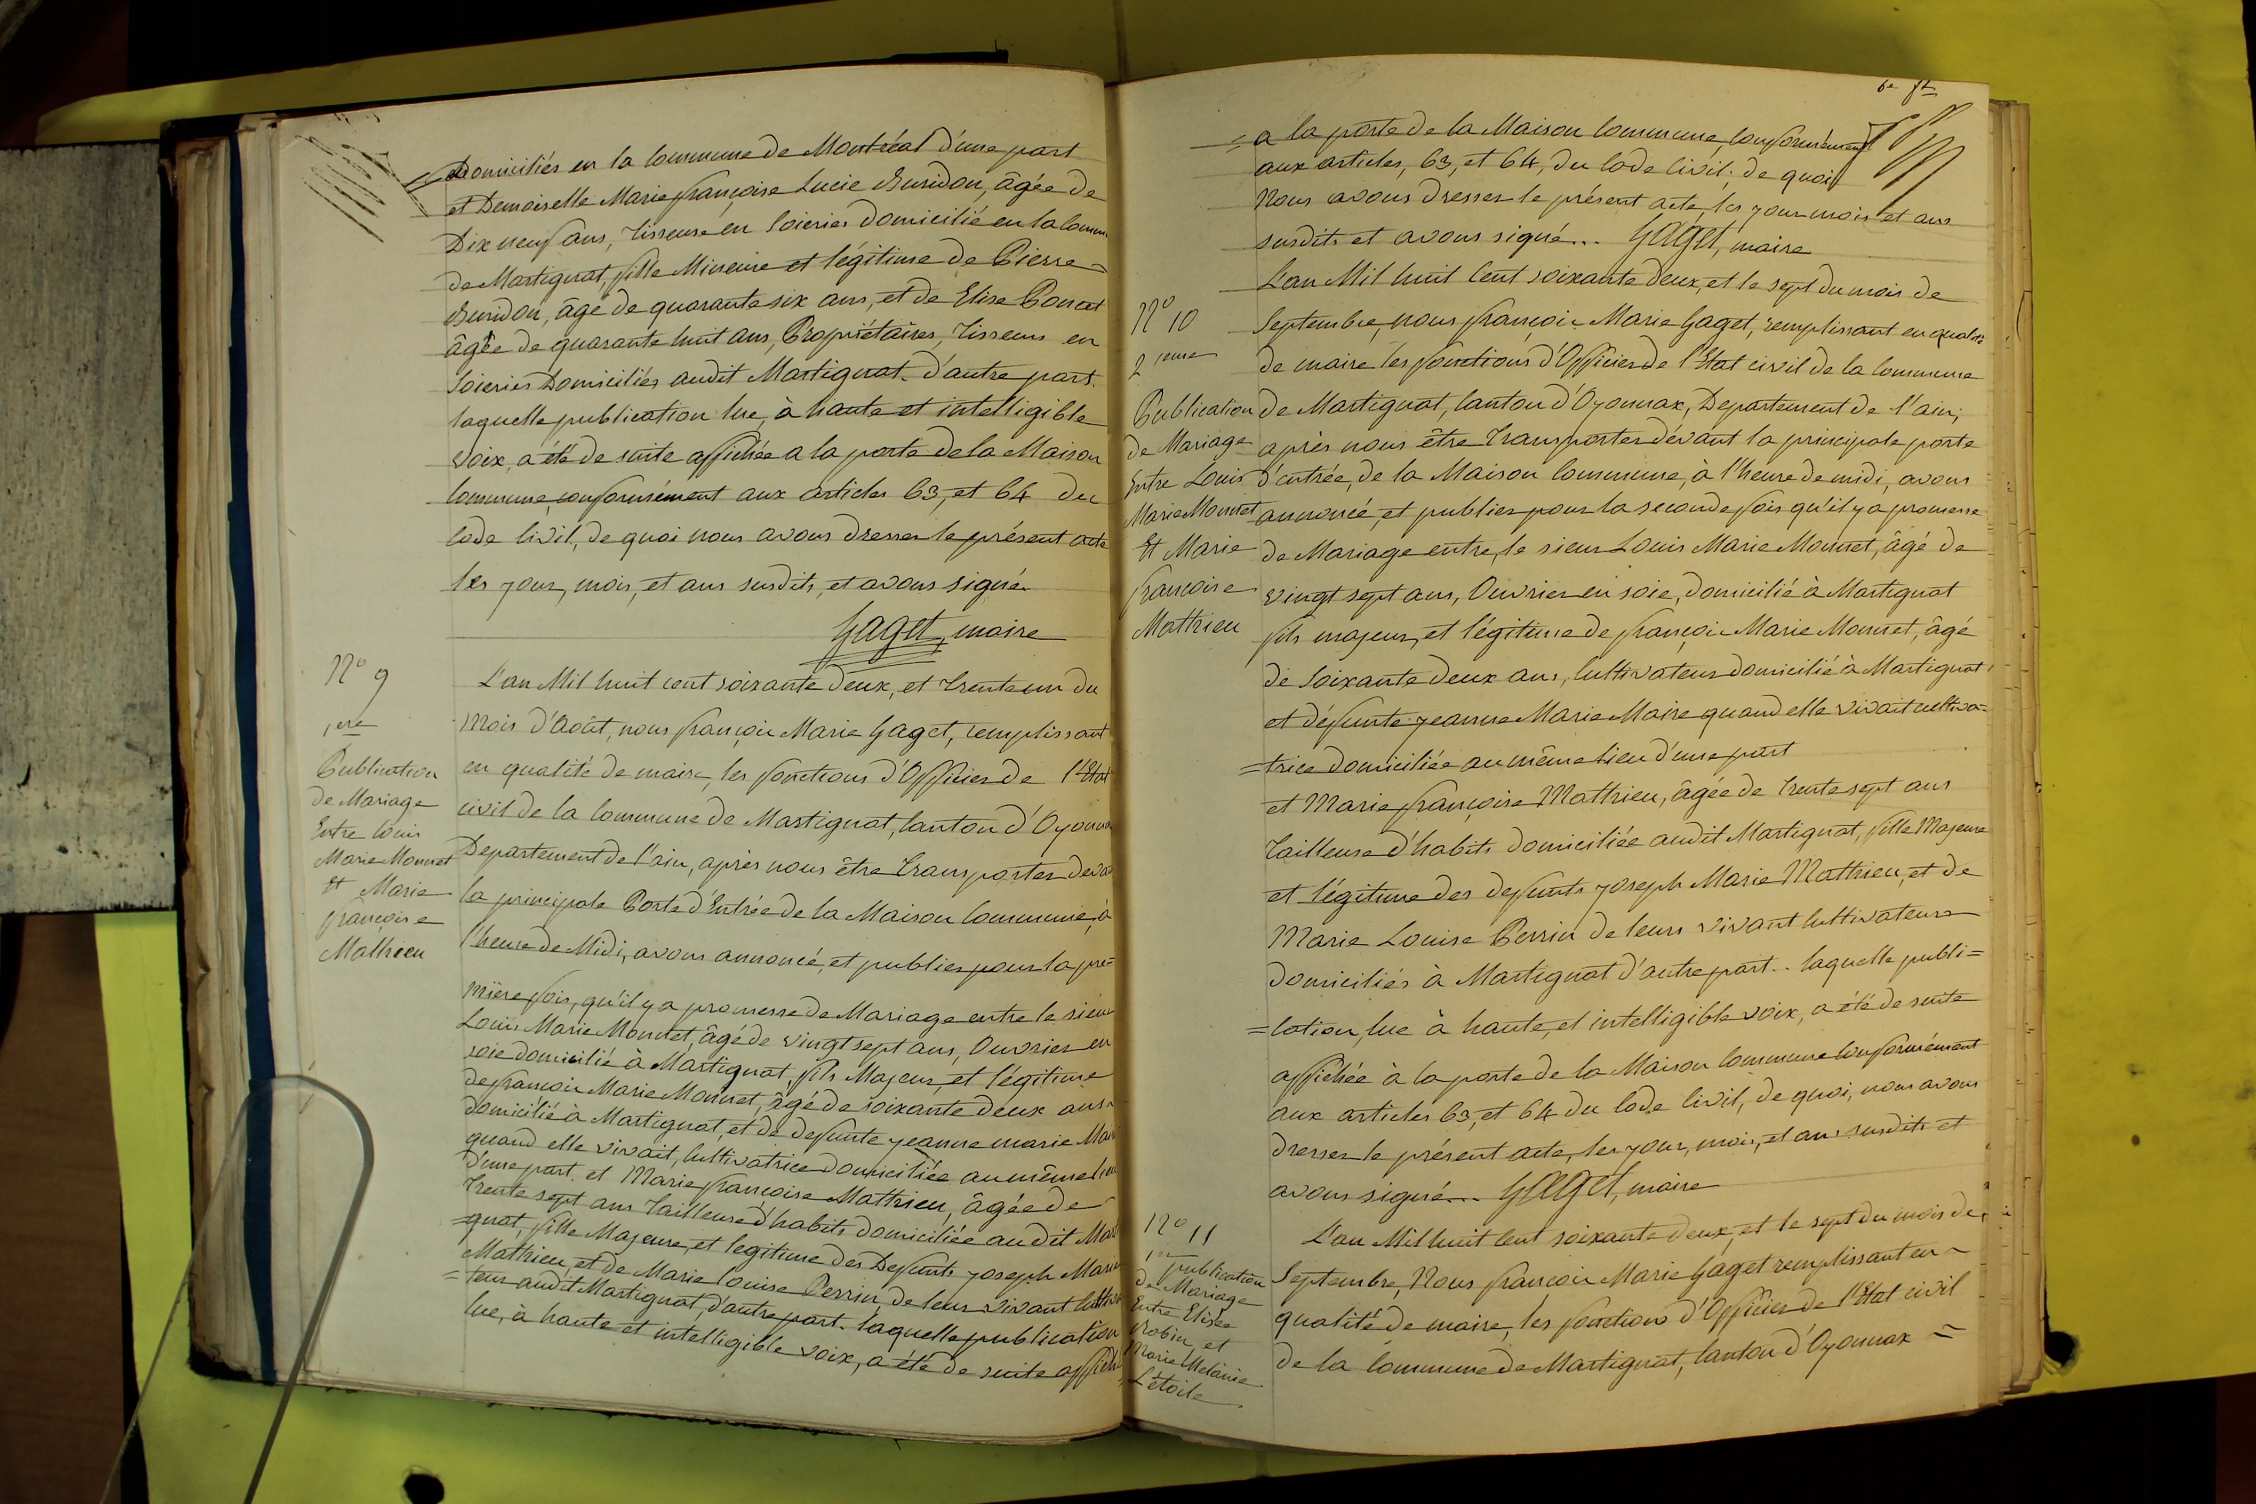 Domiciliés en la Commune de Montréal d'une part
et Demoiselle Marie françoise Lucie Buridon, âgée de
Dix neuf ans, Tisseuse en Soieries domicilié en la Commune
de Martignat, fille Mineure et légitime de Pierre
Buridon, âgé de quarante six ans, et de Elise Poncet
âgée de quarante huit ans, Propriétaires, Tisseurs en
Soieries Domiciliés audit Martignat. d'autre part.
laquelle publication lue, à haute et intelligible
voix, a été de suite affichée a la porte de la Maison
Commune, conformément aux articles 63, et 64 du
Code Civil, de quoi nous avons dresser le présent acte
les jour, mois, et ans susdits, et avons signé
Gaget, maire
N° 9
1ere
Publication
de Mariage
Entre Louis
Marie Monnet
Et Marie
françoise
Mathieu
L'an Mil huit cent soixante deux, et trente un du
Mois d'Août, nous françois Marie Gaget, remplissant
en qualité de maire, les fonctions d'Officier de l'Etat
civil de la Commune de Martignat, Canton d'Oyonnax
Departement de l'ain, après nous être transporter devant
la principale Porte d'Entrée de la Maison Commune, à
l'heure de Midi, avons annoncé, et publier pour la pre=
mière fois, qu'il y a promesse de Mariage entre le sieur
Louis Marie Monnet, âgé de vingt sept ans, Ouvrier en
soie domicilié à Martignat, fils Majeur, et légitime
de françois Marie Monnet, âgé de soixante deux ans
domicilié à Martignat, et de defunte jeanne marie Maire
quand elle vivait, Cultivatrice domiciliée au même lieu
d'une part. et Marie françoise Mathieu, âgée de
trente sept ans Tailleuse d'habits domiciliée au dit Marti
=gnat, fille Majeure, et legitime des Defunts joseph Marie
Mathieu, et de Marie Louise Perrin, de leur vivant Cultiva
=teur audit Martignat, d'autre part. laquelle publication
lue, à haute et intelligible voix, a été de suite affichée
6e ft
= a la porte de la Maison Commune, Conformément
aux articles, 63, et 64, du Code Civil, de quoi
Nous avons dresser le présent acte, les jour mois et ans
susdits et avons signé... Gaget, maire
N° 10
2ieme
Publication
de Mariage
Entre Louis
Marie Monnet
Et Marie
françoise
Mathieu
L'an Mil huit Cent soixante deux, et le sept du mois de
Septembre, nous françois Marie Gaget, remplissant en qualité
de maire les fonctions d'Officier de l'Etat civil de la Commune
de Martignat, Canton d'Oyonnax, Departement de l'ain,
après nous être transporter devant la principale porte
d'entrée, de la Maison Commune, à l'heure de midi, avons
annoncé, et publier pour la seconde fois qu'il y a promesse
de Mariage entre, le sieur Louis Marie Monnet, âgé de
vingt sept ans, Ouvrier en soie, domicilié à Martignat
fils majeur, et légitime de françois Marie Monnet, âgé
de Soixante deux ans, Cultivateur domicilié à Martignat
et défunte jeanne Marie Maire quand elle vivait cultiva=
=trice domiciliée au même Lieu d'une part
et Marie françoise Mathieu, âgée de trente sept ans
Tailleuse d'habits domiciliée audit Martignat, fille Majeure
et légitime des defunts joseph Marie Mathieu, et de
Marie Louise Perrin de leurs vivant Cultivateurs
domiciliés à Martignat d'autre part.. laquelle publi=
=cation, lue à haute, et intelligible voix, a été de suite
affichée à la porte de la Maison Commune Conformément
aux articles 63, et 64 du Code Civil, de quoi, nous avons
dresser le présent acte, les jour, mois, et ans susdits et
avons signé... Gaget, maire
N° 11
1ere publication
de Mariage
Entre Elisée
Robin et
Marie Mélanie
Létoile
L'an Mil huit Cent soixante deux, et le sept du mois de
Septembre, Nous françois Marie Gaget remplissant en
qualité de maire, les fonctions d'Officier de l'Etat civil
de la Commune de Martignat, Canton d'Oyonnax =